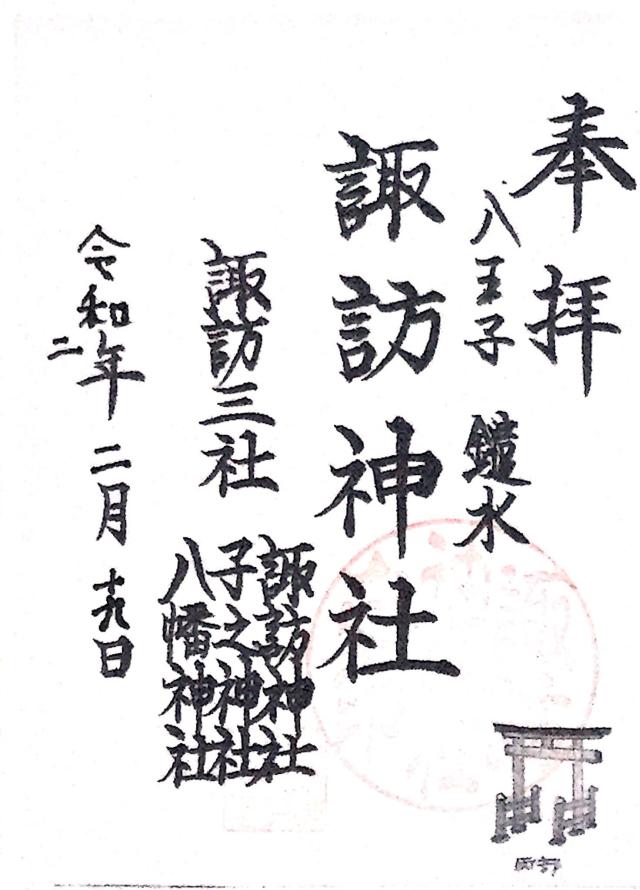 奉拝
八王子 鑓水
諏訪神社
諏訪三社
諏訪神社
子之神社
八幡神社
令和二年二月十九日